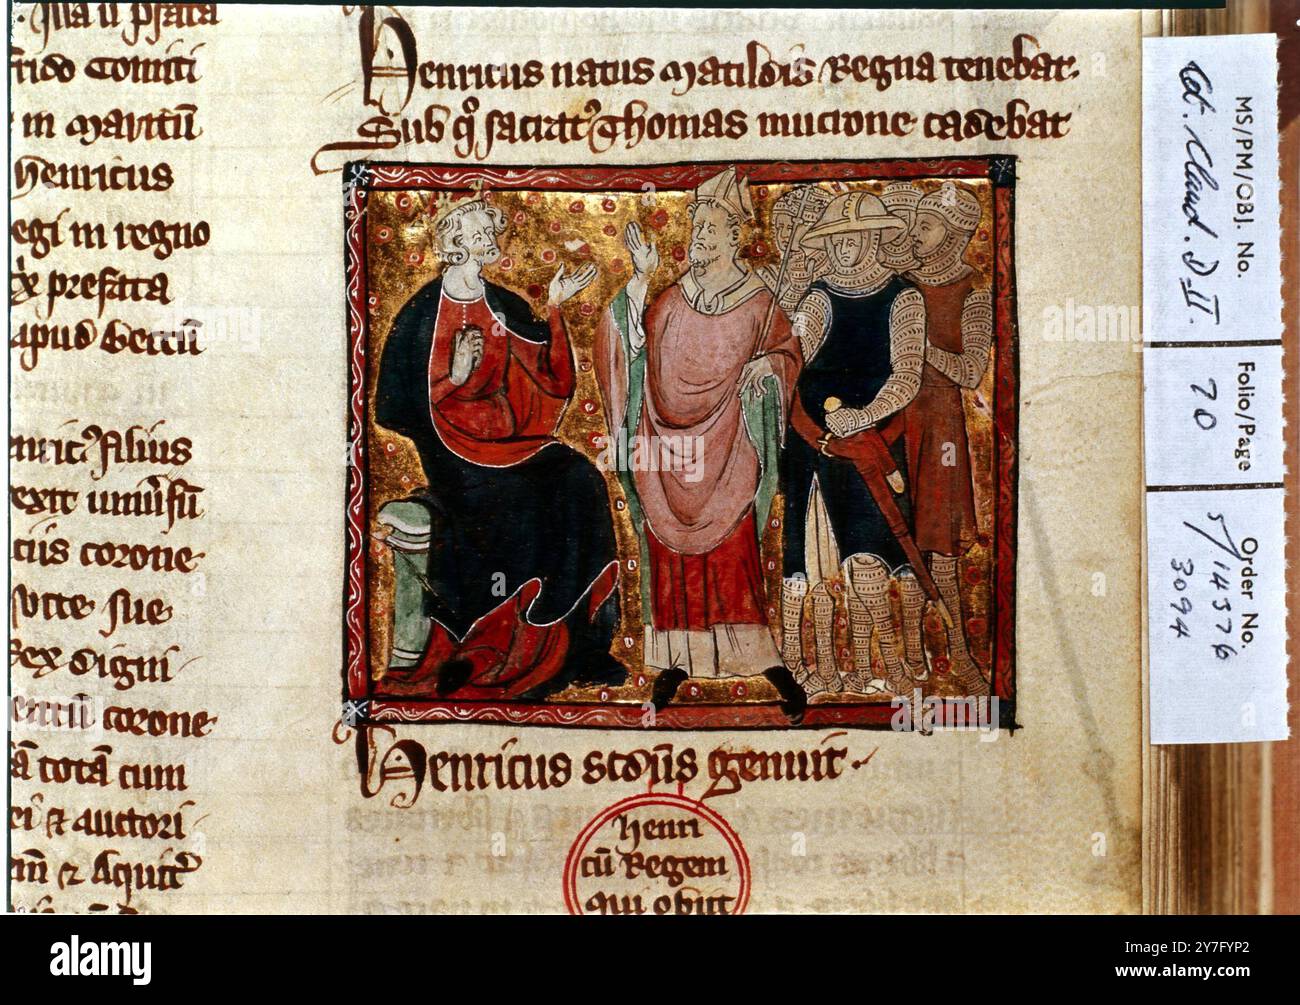 . Illa u p̄fata
rido Comiti
in Maritū
henricus
egi in regno
ꝑx prefata
apud Bertū
enric᷒ filius
rexit uniūsū
cius corone
Rex digni
ertū corone
ā totā cum
ei ⁊ auctori
m̄ ⁊ Aquit᷒
Henricus natus Matildis Regna tenebat.
Sub q̊ sacrat᷒ Thomas mucrone cadebat
Henricus scdūs genuit.
henri
cū Regem
qui obiit
MS/PM/OBJ. No.
Cot. Claud. D II.
Folio/Page
70
Order No.
14376
3094
alamy
Image ID: 2Y7FYP2
www.alamy.com